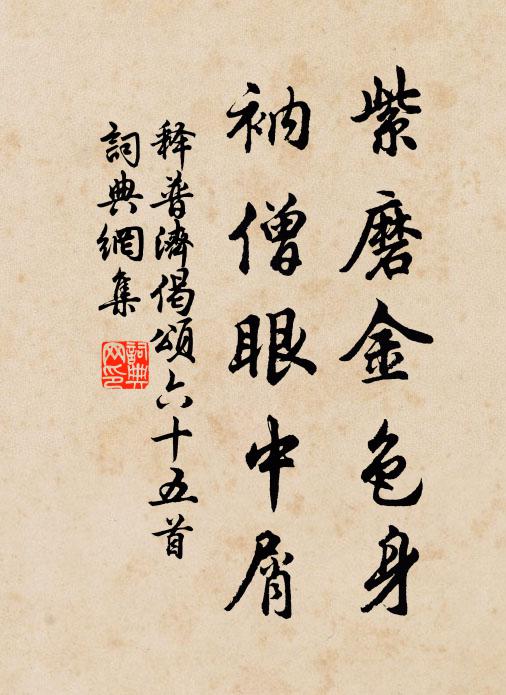 紫磨金色身
衲僧眼中屑
釋普濟偈頌六十五首
詞典網集
詞典網印